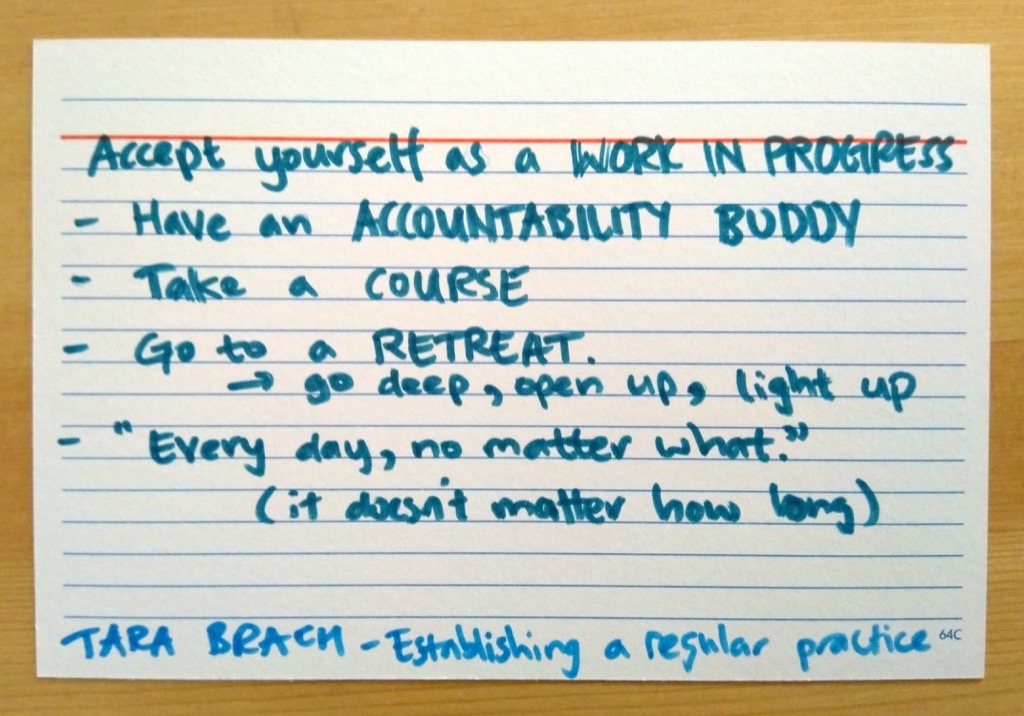 Accept yourself as a WORK IN PROGRESS
- Have an ACCOUNTABILITY BUDDY
- Take a COURSE
- Go to a RETREAT.
→ go deep, open up, light up
- "Every day, no matter what."
(it doesn't matter how long)
TARA BRACH - Establishing a regular practice
64C